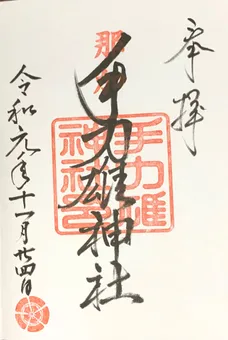 奉拝
手力雄神社
手力雄神社印
令和元年十一月廿四日